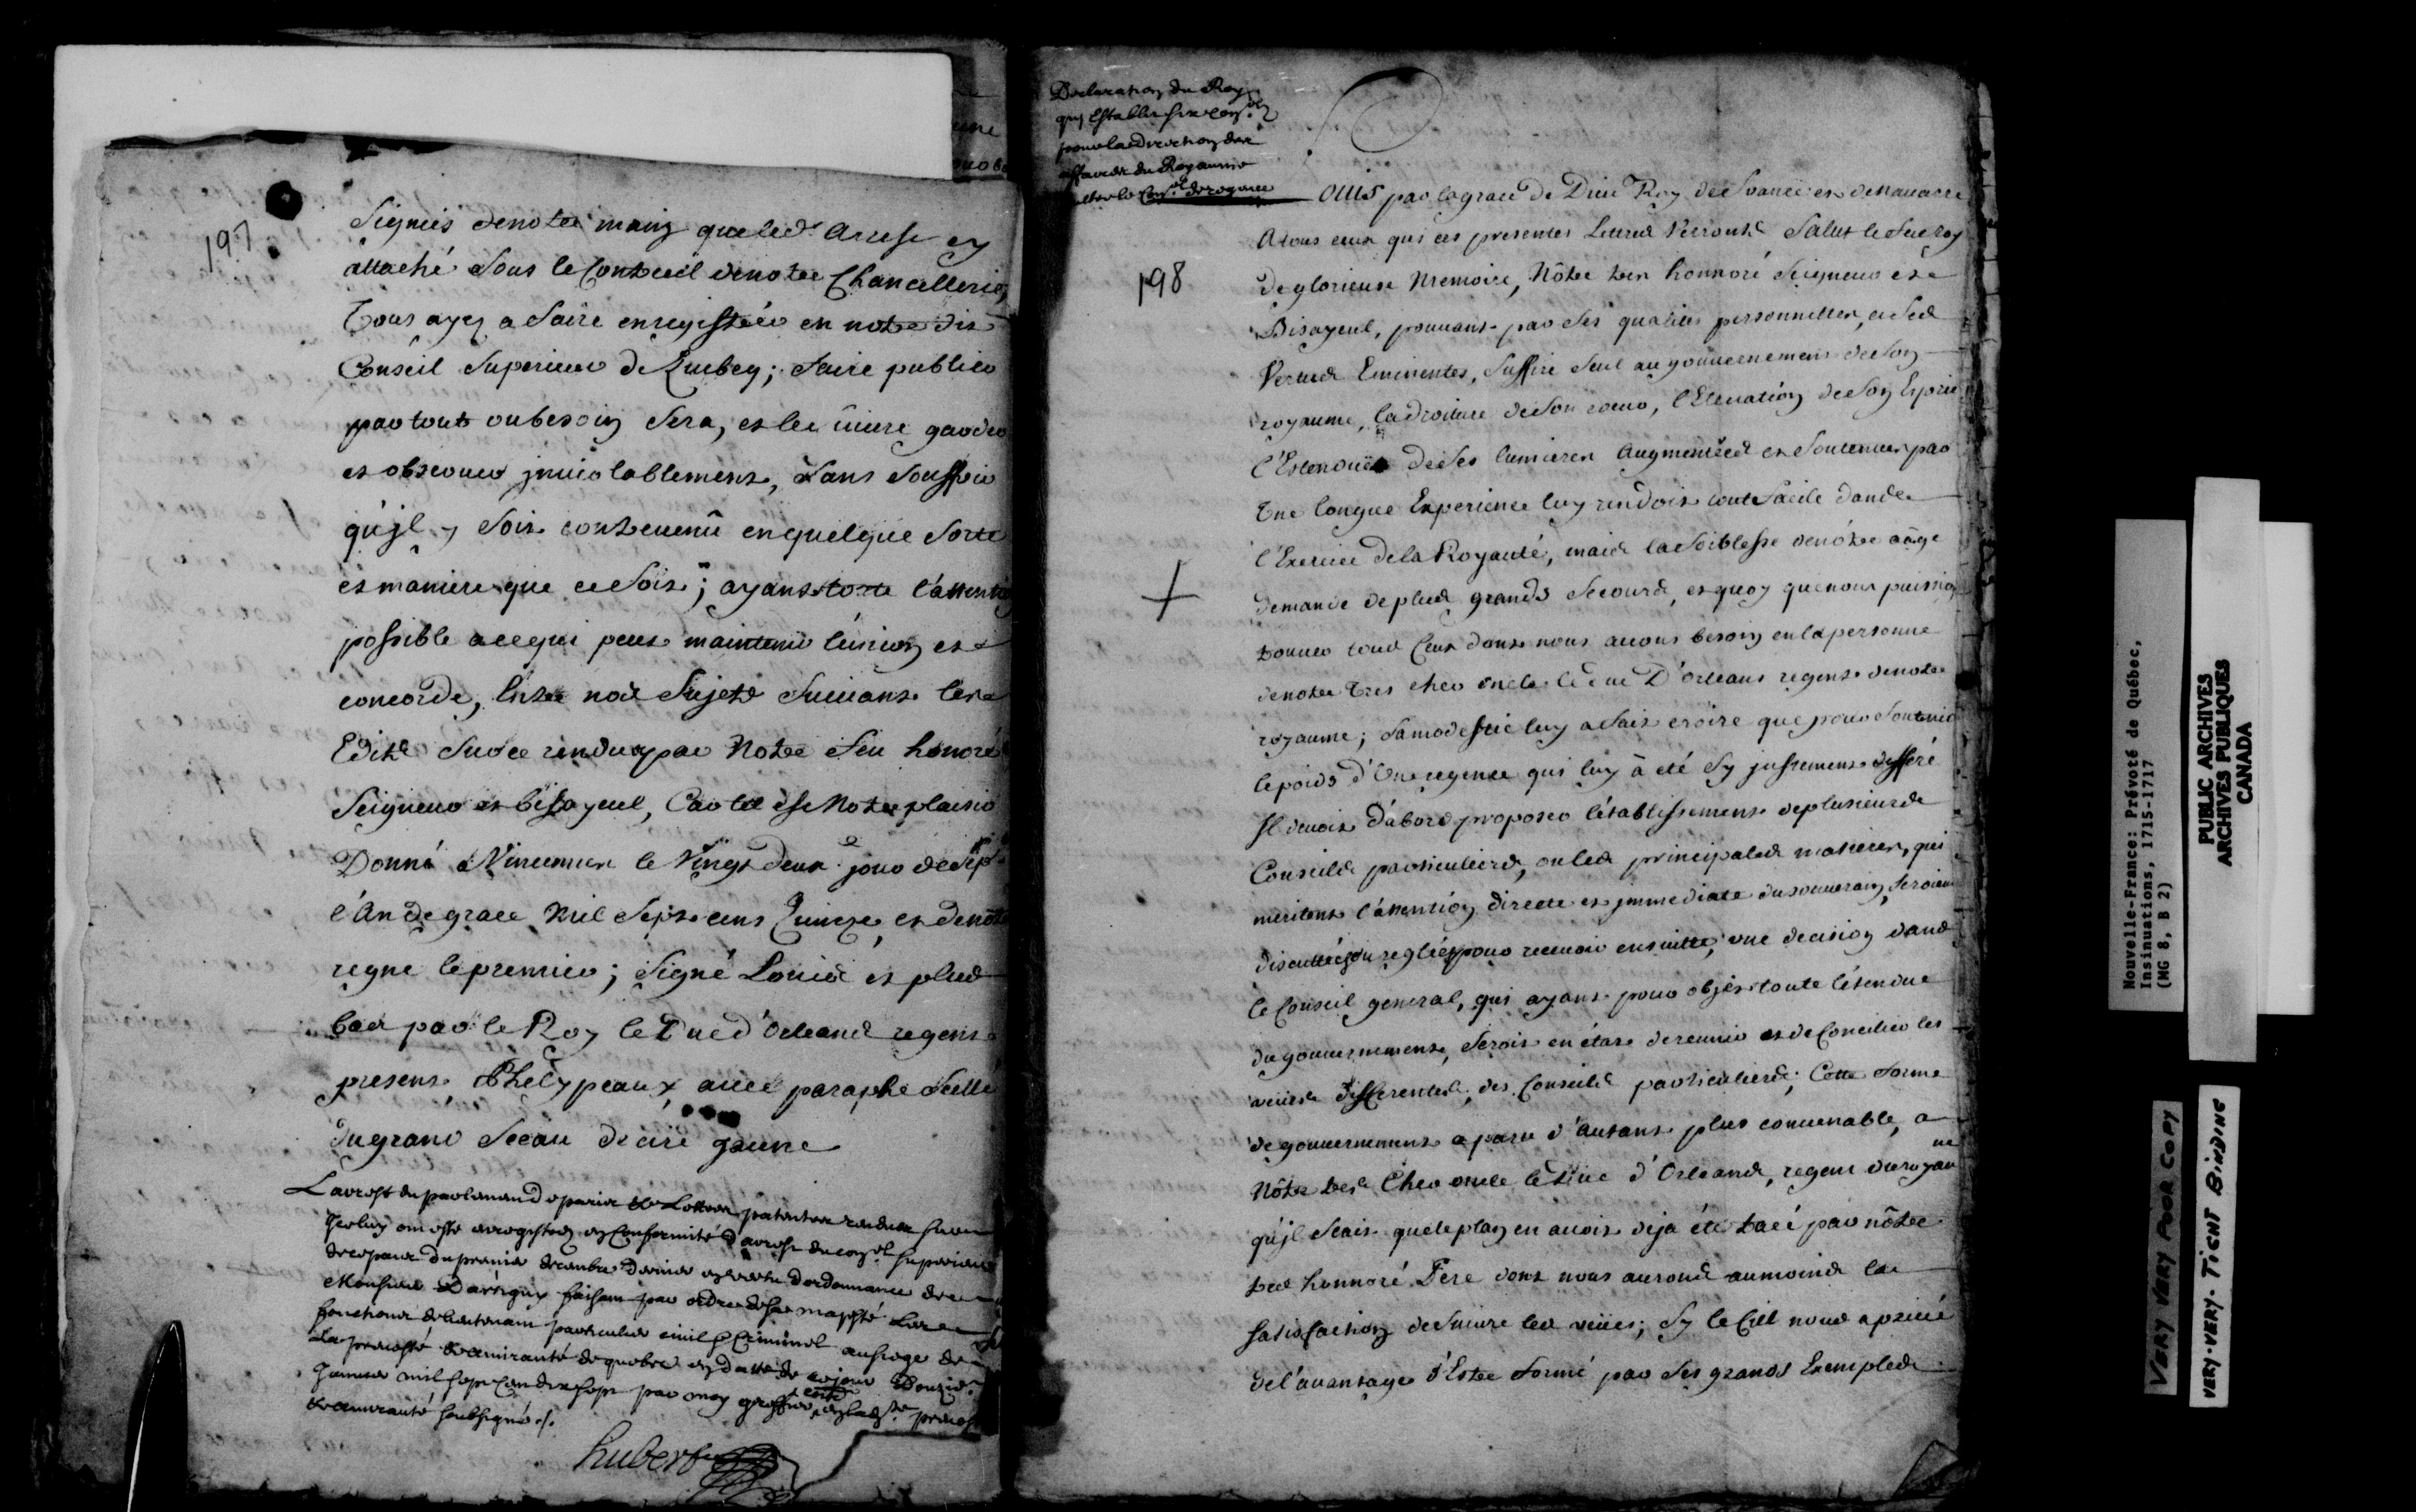 197
Signéés denotre main que led. arrest cy
attaché sous le Contrescel denotre Chancellerie
Vous ayez a faire enregistrer en notre dit
Conseil Superieur de Quebeq; faire publier
par tout ou besoin sera, et le suivre garder
et observer jnviolablement, sans souffrir
qu'jl y soit contrevenu en quelque sorte
et maniere que ce soit; ayant toute l'attention
possible a ce qui peut maintenir l'union et
concorde, Entre nos Sujets Suivant les
Edits sur ce rendus par Notre feu honoré
Seigneur et bisayeul, Car tel est Notre plaisir
Donné a Vincennes le Vingt deux.e jour de sept.
l'An de grace Mil Sept cens Quinze et denotre
regne le premier; Signé Louis et plus
bas par le Roy le Duc d'Orleans regent
present Phelypeaux avec paraphe scellé
du grand Sceau de cire jaune
Larrest du parlement de paris & Lettres patentes rendues sur
Iceluy ont esté enregistrez en Conformité d'arrest du con.el superieur
de ce pays du premier decembre dernier en vertu d'ordonnance de
Monsieur Dartigny faisant par ordre de sa majesté Les
fonctions de lieutenant particulier civil & Criminel au siege de
La prevosté & amirauté de quebec en datte de ce jour Douzie.
Janvier mil sept cens dix sept par moy greffier en lad.te prevosté
& amirauté soubsigné ./.
hubert
Declaration du Roy
qui Establit six con.els
pour la direction des
affaires du Royaume
et le Con.el de regence
198
OUIS par la grace de Dieu Roy de france et de Navarre
A tous ceux qui ces presentes Lettres Verront Salut le feu roy
de glorieuse Memoire, Nôtre tres honnoré Seigneur et
Bisayeul, pouvant par ses qualités personnelles, et ses
Vertus Eminentes, suffire seul au gouvernement de son
royaume, la droiture de son cœur, l'Elevation de son Esprit
l'Etendue de ses lumieres Augmentées et soutenues par
Une longue Experience luy rendoit tout facile dans
l'Exercice de la Royauté, mais la foiblesse denôtre aâge
demande de plus grands secours, et quoy que nous puissions
trouver tous Ceux dont nous avons besoin en la personne
denotre tres cher oncle le duc D'orleans regent denotre
royaume; sa modestie luy a fait croire que pour soutenir
le poids d'Une regence qui luy à eté sy justement defferé
Jl devoit d'abord proposer l'établissement de plusieurs
Conseils particuliers, ou les principales matieres, qui
meritent l'attention directe et jmmediate du souverain, seroient
discuttées et reglées pour recevoir ensuitte, une decision dans
le Conseil general, qui ayant pour objet toute l'étendue
du gouvernement, seroit en état de reunir et de Concilier les
veües differentes, des Conseils particuliers; Cette forme
de gouvernement a paru d'autant plus convenable, a
Nôtre tres Cher oncle le Duc d'Orleans, regent du royaume
qu'jl sçait que le plan en avoit deja été tracé par nôtre
tres honnoré Pere dont nous aurons au moins la
satisfaction de suivre les veües; sy le Ciel nous a privé
de l'avantage d'Estre formé par ses grands Exemples
Nouvelle-France: Prévôté de Québec,
Insinuations, 1715-1717
(MG 8, B 2)
PUBLIC ARCHIVES
ARCHIVES PUBLIQUES
CANADA
VERY VERY POOR COPY
VERY-VERY-TIGHT BINDING